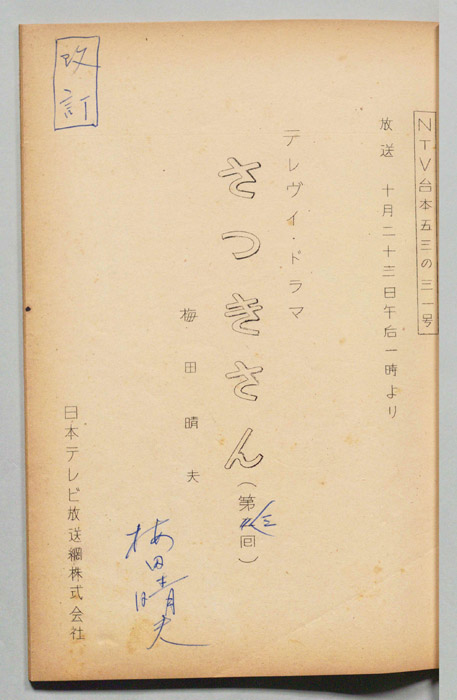 NTV台本五三の三一号
放送 十月二十三日午后一時より
テレヴィ・ドラマ
さつきさん(第三回)
梅田晴夫
梅田晴夫
日本テレビ放送網株式会社
改訂